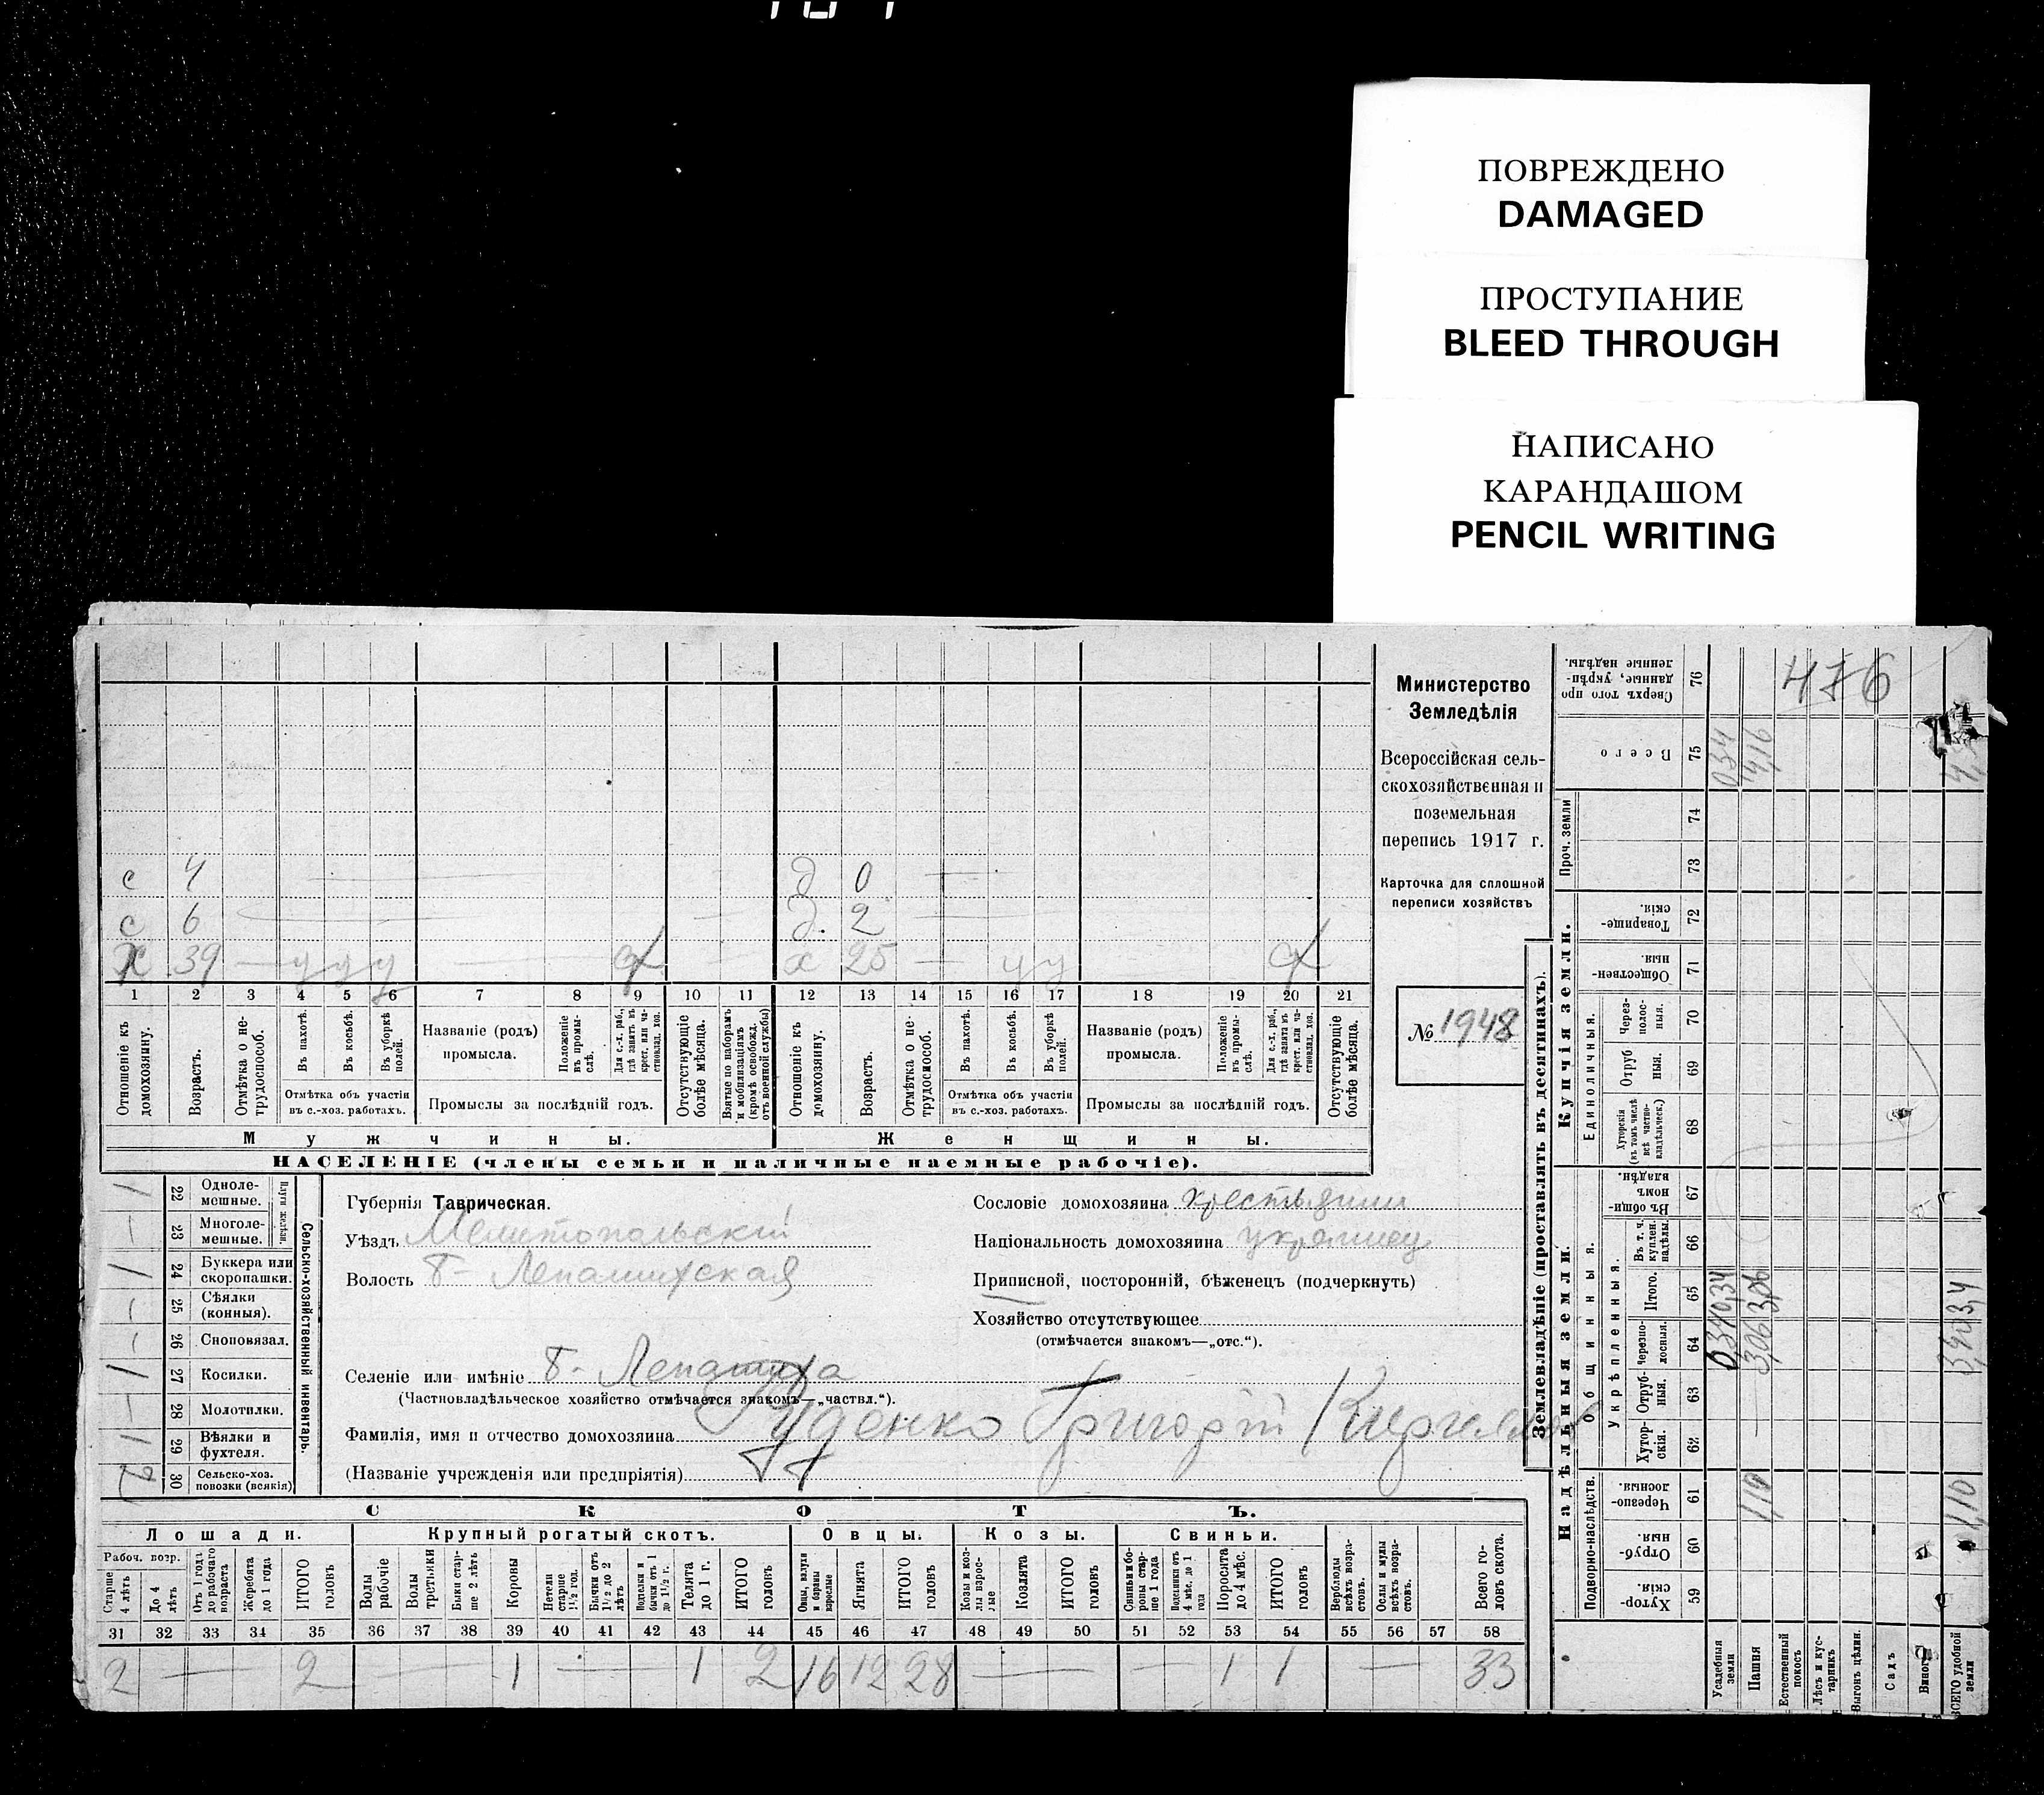 ПОВРЕЖДЕНО
DAMAGED
ПРОСТУПАНИЕ
BLEED THROUGH
НАПИСАНО
КАРАНДАШОМ
PENCIL WRITING
с 4 д 0
с 6 д. 2
х 39 — у у у — х 25 — у у
1 2 3 4 5 6 7 8 9 10 11 12 13 14 15 16 17 18 19 20 21
Отношеніе къ домохозяину.
Возрастъ.
Отмѣтка о нетрудоспособ.
Въ пахотѣ.
Въ косьбѣ.
Въ уборкѣ полей.
Отмѣтка объ участіи
въ с.-хоз. работахъ.
Названіе (родъ)
промысла.
Положеніе въ промыслѣ.
Для с.-х. раб., гдѣ занятъ въ крест. или частновлад. хоз.
Промыслы за послѣдній годъ.
Отсутствующіе болѣе мѣсяца.
Взятые по наборамъ и мобилизаціямъ (кромѣ освобожд. отъ военной службы)
Отношеніе къ домохозяину.
Возрастъ.
Отмѣтка о нетрудоспособ.
Въ пахотѣ.
Въ косьбѣ.
Въ уборкѣ полей.
Отмѣтка объ участіи
въ с.-хоз. работахъ.
Названіе (родъ)
промысла.
Положеніе въ промыслѣ.
Для с.-х. раб., гдѣ занята въ крест. или частновлад. хоз.
Промыслы за послѣдній годъ.
Отсутствующіе болѣе мѣсяца.
Мужчины. Женщины.
НАСЕЛЕНІЕ (члены семьи и наличные наемные рабочіе).
Министерство
Земледѣлія
Всероссійская сель-
скохозяйственная и
поземельная
перепись 1917 г.
Карточка для сплошной
переписи хозяйствъ
№ 1948
Сельско-хозяйственный инвентарь.
Плуги желѣзн.
1 22 Однолемешные.
— 23 Многолемешные.
1 24 Буккера или скоропашки.
— 25 Сѣялки (конныя).
— 26 Сноповязал.
1 27 Косилки.
— 28 Молотилки.
1 29 Вѣялки и фухтеля.
2 30 Сельско-хоз. повозки (всякія)
Губернія Таврическая.
Уѣздъ Мелитопольскій
Волость Б- Лепатихская
Селеніе или имѣніе Б- Лепатиха
(Частновладѣльческое хозяйство отмѣчается знакомъ—„частвл.“).
Фамилія, имя и отчество домохозяина Руденко Григорій
(Названіе учрежденія или предпріятія)
Сословіе домохозяина крестьянин
Національность домохозяина украинец
Приписной, посторонній, бѣженецъ (подчеркнуть)
Хозяйство отсутствующее
(отмѣчается знакомъ—„отс.“).
СКОТЪ.
Лошади. Крупный рогатый скотъ. Овцы. Козы. Свиньи.
Рабоч. возр.
Старше 4 лѣтъ
До 4 лѣтъ
Отъ 1 года до рабочаго возраста
Жеребята до 1 года
ИТОГО головъ
Волы рабочіе
Волы третьяки
Быки старше 2 лѣтъ
Коровы
Нетели старше 1½ год.
Бычки отъ 1½ до 2 лѣтъ
Подтелки и бычки отъ 1 до 1½ г.
Телята до 1 г.
ИТОГО головъ
Овцы, валухи и бараны взрослые
Ягнята
ИТОГО головъ
Козы и козлы взрослые
Козлята
ИТОГО головъ
Свиньи и боровы старше 1 года
Подсвинки отъ 4 мѣс. до 1 года
Поросята до 4 мѣс.
ИТОГО головъ
Верблюды всѣхъ возрастовъ.
Ослы и мулы всѣхъ возрастовъ.
Всего головъ скота.
31 32 33 34 35 36 37 38 39 40 41 42 43 44 45 46 47 48 49 50 51 52 53 54 55 56 57 58
2 — 2 — 1 — 1 2 16 12 28 — — 1 1 — 33
Землевладѣніе (проставлять въ десятинахъ).
Надѣльныя земли. Купчія земли.
Подворно-наслѣдств. Общинныя. Укрѣпленныя. Единоличныя. Проч. земли
Хуторскія 59
Отрубныя 60
Черезполосныя. 61
Хуторскія. 62
Отрубныя. 63
черезполосныя. 64
Итого. 65
Въ т. ч. куплен. надѣлы. 66
Въ общинномъ владѣн. 67
Хуторскія (въ томъ числѣ всѣ частновладѣльческ.) 68
Отрубныя. 69
Черезполосныя. 70
Общественныя 71
Товарищескія. 72
73 74
Всего 75
Сверхъ того проданные, укрѣпленные надѣлы. 76
476
Усадебныя земли 0,34 0,34 034
Пашня 1,10 — 3,06 3,06 4,16
Естественный покосъ
Лѣсъ и кустарникъ
Выгонъ цѣлин.
Садъ
Виногр
ВСЕГО удобной земли 1,10 3,40